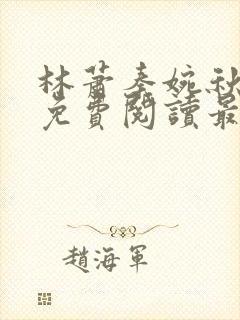 林蕭秦婉秋
免費閱讀最
趙海軍